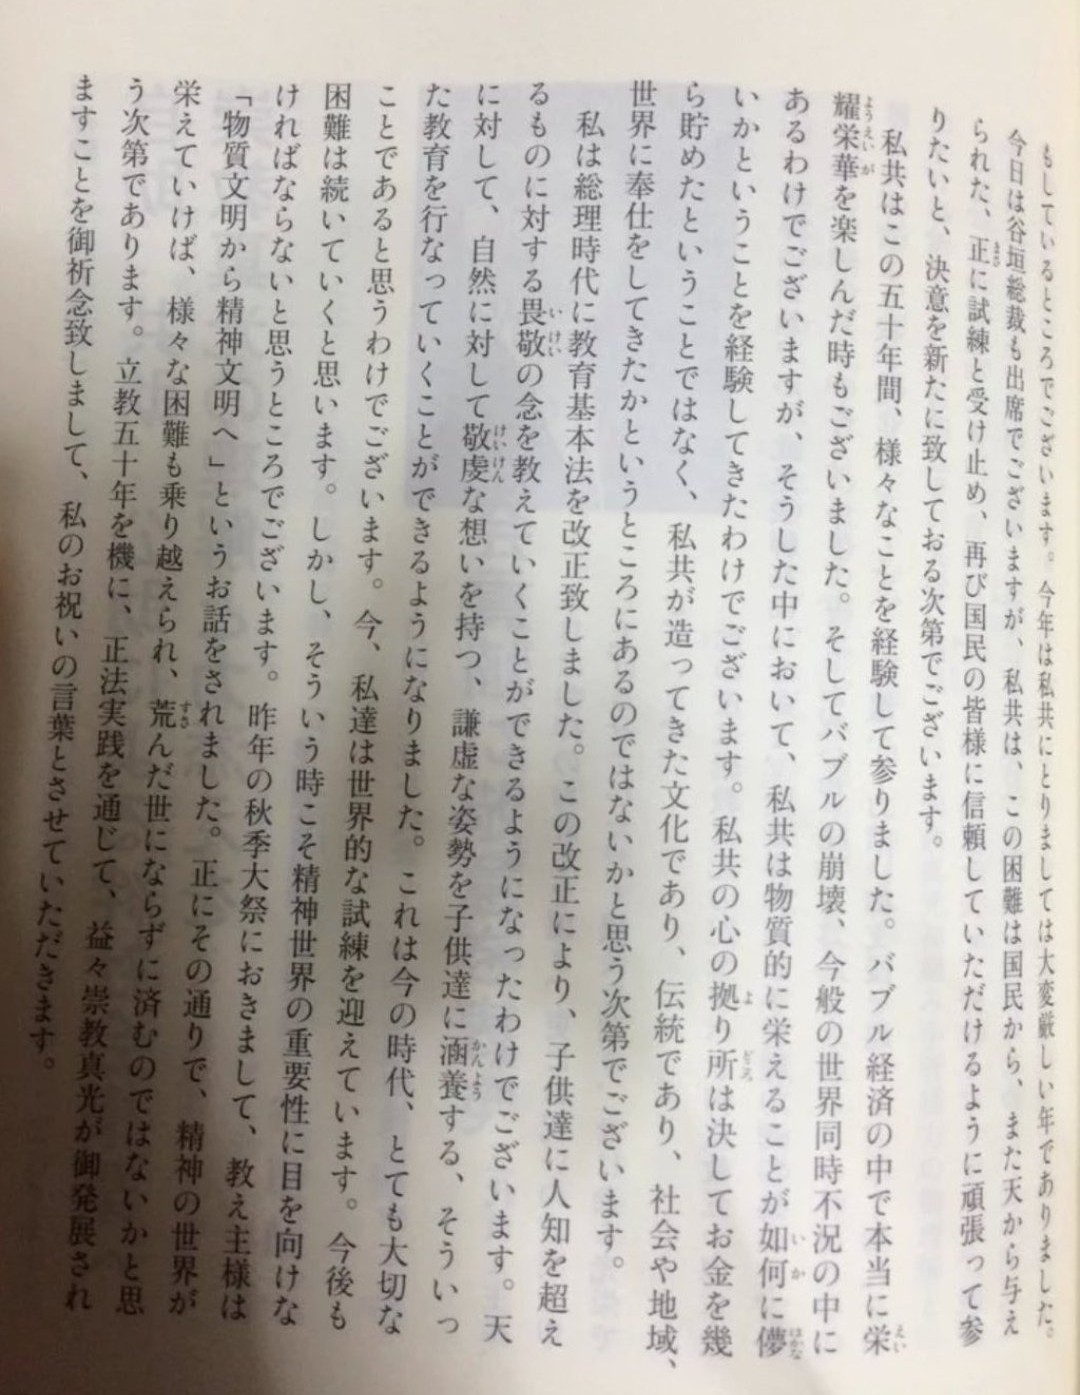 もしているところでございます。今年は私共にとりましては大変厳しい年でありました。
今日は谷垣総裁も出席でございますが、私共は、この困難は国民から、また天から与え
られた、正に試練と受け止め、再び国民の皆様に信頼していただけるように頑張って参
りたいと、決意を新たに致しておる次第でございます。
私共はこの五十年間、様々なことを経験して参りました。バブル経済の中で本当に栄
耀栄華を楽しんだ時もございました。そしてバブルの崩壊、今般の世界同時不況の中に
あるわけでございますが、そうした中において、私共は物質的に栄えることが如何に儚
いかということを経験してきたわけでございます。私共の心の拠り所は決してお金を幾
ら貯めたということではなく、私共が造ってきた文化であり、伝統であり、社会や地域、
世界に奉仕をしてきたかというところにあるのではないかと思う次第でございます。
私は総理時代に教育基本法を改正致しました。この改正により、子供達に人知を超え
るものに対する畏敬の念を教えていくことができるようになったわけでございます。天
に対して、自然に対して敬虔な想いを持つ、謙虚な姿勢を子供達に涵養する、そういっ
た教育を行なっていくことができるようになりました。これは今の時代、とても大切な
ことであると思うわけでございます。今、私達は世界的な試練を迎えています。今後も
困難は続いていくと思います。しかし、そういう時こそ精神世界の重要性に目を向けな
ければならないと思うところでございます。昨年の秋季大祭におきまして、教え主様は
「物質文明から精神文明へ」というお話をされました。正にその通りで、精神の世界が
栄えていけば、様々な困難も乗り越えられ、荒んだ世にならずに済むのではないかと思
う次第であります。立教五十年を機に、正法実践を通じて、益々崇教真光が御発展され
ますことを御祈念致しまして、私のお祝いの言葉とさせていただきます。